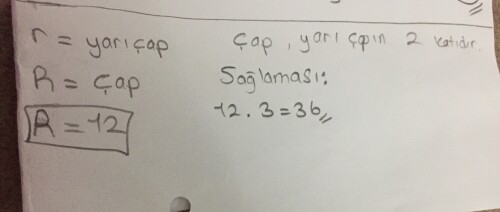 r = yarıçap
R = Çap
R = 12
Çap, yarı çapın 2 katıdır.
Sağlaması:
12.3=36